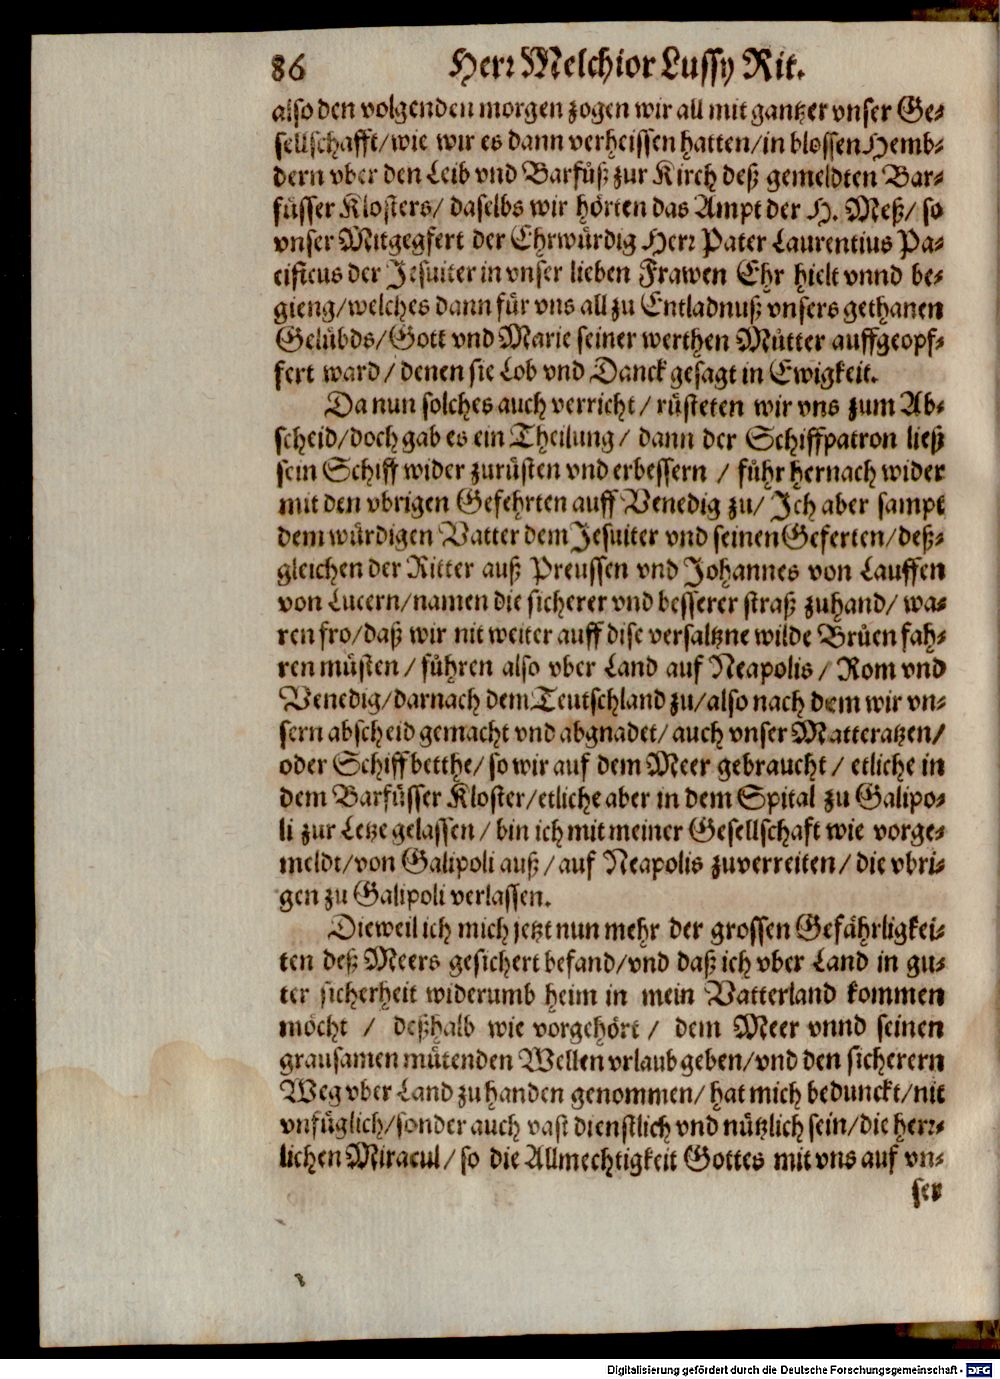 86 Herr Melchior Lussy Rit.
also den volgenden morgen zogen wir all mit gantzer vnser Ge-
sellschafft/wie wir es dann verheissen hatten/in blossen Hemb-
dern vber den Leib vnd Barfůß zur Kirch deß gemeldten Bar-
fůsser Klosters/ daselbs wir hörten das Ampt der H. Meß/ so
vnser Mitgegfert der Ehrwürdig Herr Pater Laurentius Pa-
cificus der Jesuiter in vnser lieben Frawen Ehr hielt vnnd be-
gieng/welches dann für vns all zu Entladnuß vnsers gethanen
Gelübds/Gott vnd Marie seiner werthen Můtter auffgeopf-
fert ward/ denen sie Lob vnd Danck gesagt in Ewigkeit.
Da nun solches auch verricht/ rüsteten wir vns zum Ab-
scheid/doch gab es ein Theilung/ dann der Schiffpatron ließ
sein Schiff wider zurüsten vnd erbessern / fůhr hernach wider
mit den vbrigen Gefehrten auff Venedig zu/ Ich aber sampt
dem würdigen Vatter dem Jesuiter vnd seinen Geferten/deß-
gleichen der Ritter auß Preussen vnd Johannes von Lauffen
von Lucern/namen die sicherer vnd besserer straß zuhand/ wa-
ren fro/daß wir nit weiter auff dise versaltzne wilde Brůen fah-
ren můsten/ fůhren also vber Land auf Neapolis/ Rom vnd
Venedig/darnach dem Teutschland zu/also nach dem wir vn-
sern abscheid gemacht vnd abgnadet/ auch vnser Matteratzen/
oder Schiffbetthe/ so wir auf dem Meer gebraucht/ etliche in
dem Barfůsser Kloster/etliche aber in dem Spital zu Galipo-
li zur Letze gelassen/ bin ich mit meiner Gesellschaft wie vorge-
meldt/von Galipoli auß/auf Neapolis zuverreiten/ die vbri-
gen zu Galipoli verlassen.
Dieweil ich mich jetzt nun mehr der grossen Gefährligkei-
ten deß Meers gesichert befand/vnd daß ich vber Land in gu-
ter sicherheit widerumb heim in mein Vatterland kommen
möcht / deßhalb wie vorgehört/ dem Meer vnnd seinen
grausamen mütenden Wellen vrlaub geben/vnd den sicherern
Weg vber Land zuhanden genommen/ hat mich bedunckt/nit
vnfüglich/sonder auch vast dienstlich vnd nützlich sein/die herr-
lichen Miracul/ so die Allmechtigkeit Gottes mit vns auf vn-
ser
Digitalisierung gefördert durch die Deutsche Forschungsgemeinschaft - DFG